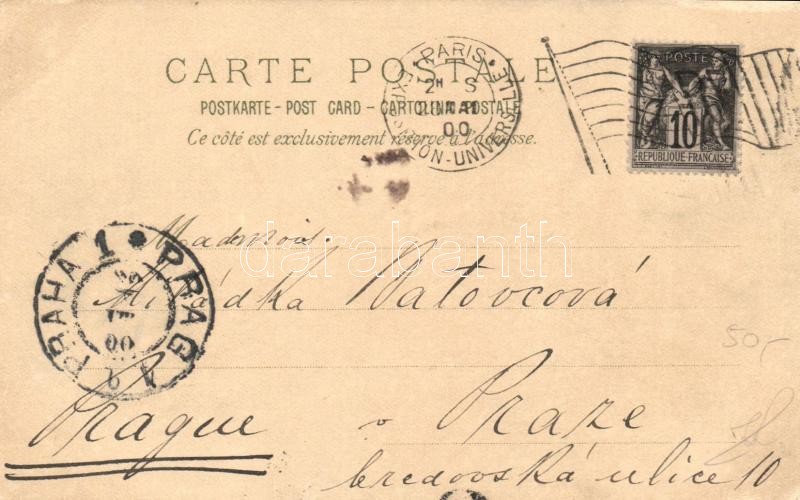 CARTE POSTALE
POSTKARTE - POST CARD - CARTOLINA POSTALE
Ce côté est exclusivement réservé à l'adresse.
PARIS
EXPOSITION-UNIVERSELLE
2H S
MAI
00
POSTE
10
REPUBLIQUE-FRANÇAISE
PRAHA 1 * PRAG
00
darabanth
Mademois.
Miládka
v Praze
Prague
bredovská ulice 10
50,-